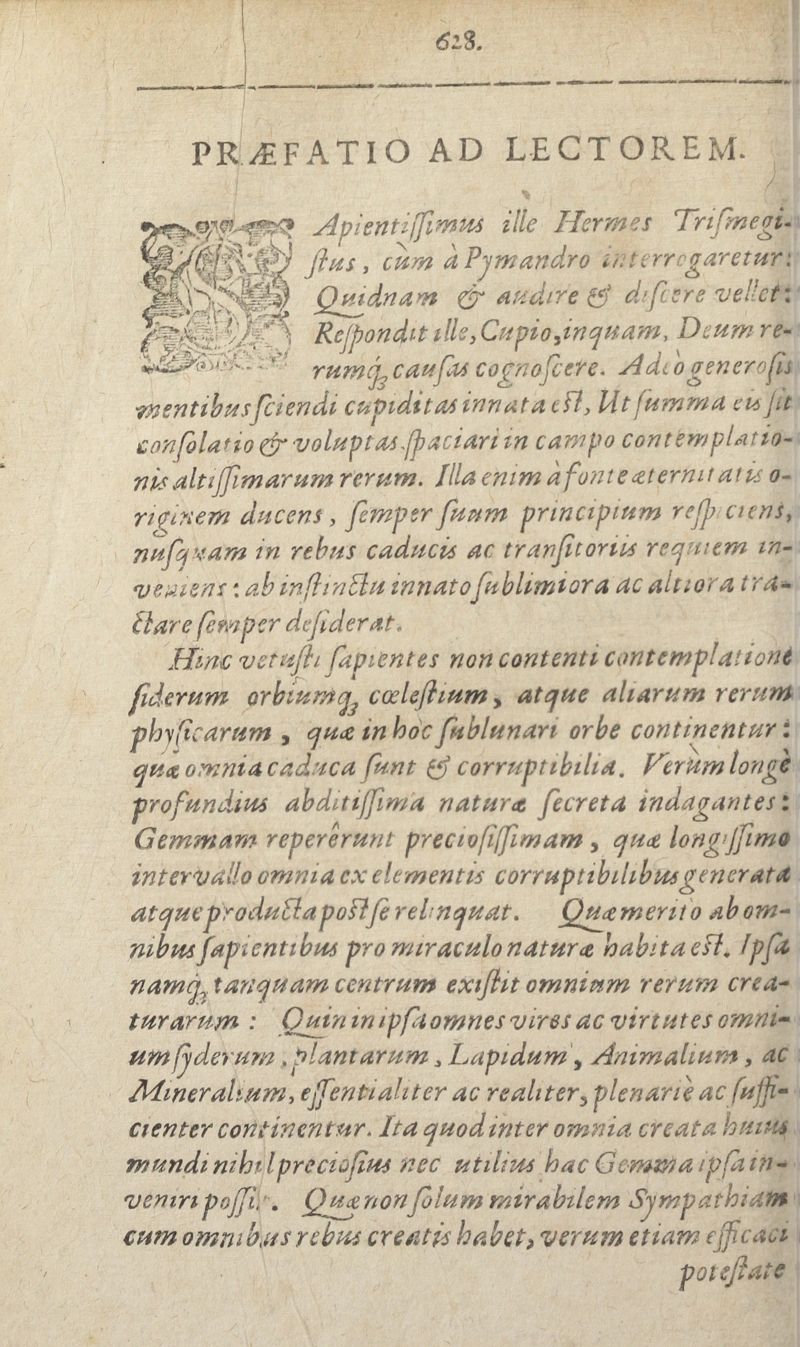 628.
PRÆFATIO AD LECTOREM.
SApientiſſimus ille Hermes Triſmegi-
ſtus, cùm à Pymandro interrogaretur:
Quidnam & audire & diſcere vellet:
Reſpondit ille, Cupio, inquam, Deum re-
rumq́; cauſas cognoſcere. Adeò generoſis
mentibus ſciendi cupiditas innata eſt, Ut ſumma eis ſit
conſolatio & voluptas ſpaciari in campo contemplatio-
nis altiſſimarum rerum. Illa enim à fonte æternitatis o-
riginem ducens, ſemper ſuum principium reſpiciens,
nuſquam in rebus caducis ac tranſitoriis requiem in-
veniens: ab inſtinctu innato ſublimiora ac altiora tra-
ctare ſemper deſiderat.
Hinc vetuſti ſapientes non contenti contemplatione
ſiderum orbiumq́; cœleſtium, atque aliarum rerum
phyſicarum, quæ in hoc ſublunari orbe continentur:
quæ omnia caduca ſunt & corruptibilia. Verùm longè
profundius abditiſſima naturæ ſecreta indagantes:
Gemmam reperêrunt precioſiſſimam, quæ longiſſimo
intervallo omnia ex elementis corruptibilibus generata
atque producta poſt ſe relinquat. Quæ merito ab om-
nibus ſapientibus pro miraculo naturæ habita eſt. Ipſa
namq́; tanquam centrum exiſtit omnium rerum crea-
turarum: Quin in ipſa omnes vires ac virtutes omni-
um ſyderum, plantarum, Lapidum, Animalium, ac
Mineralium, eſſentialiter ac realiter, plenariè ac ſuffi-
cienter continentur. Ita quod inter omnia creata huius
mundi nihil precioſius nec utilius hac Gemma ipſa in-
veniri poſſit. Quæ non ſolum mirabilem Sympathiam
cum omnibus rebus creatis habet, verum etiam efficaci
poteſtate